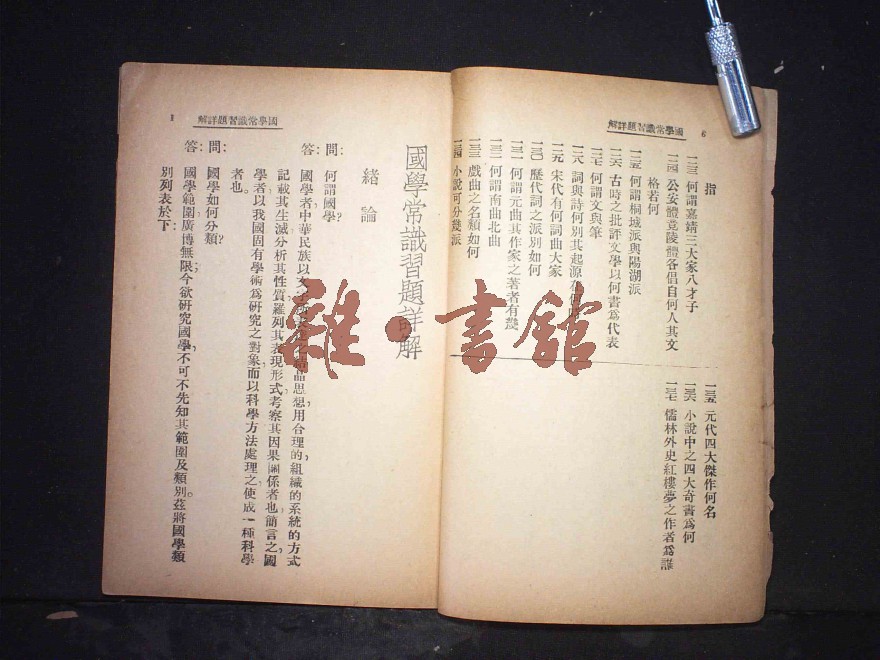 國學常識習題詳解
6
指
一二三 何謂嘉靖三大家八才子
一二四 公安體竟陵體各倡自何人其文
格若何
一二五 何謂桐城派與陽湖派
一二六 古時之批評文學以何書爲代表
一二七 何謂文與筆
一二八 詞與詩何別其起源
一二九 宋代有何詞曲大家
一三〇 歷代詞之派別如何
一三一 何謂南曲北曲
一三二 何謂元曲其作家之著者有幾
一三三 戲曲之名類如何
一三四 小說可分幾派
一三五 元代四大傑作何名
一三六 小說中之四大奇書爲何
一三七 儒林外史紅樓夢之作者爲誰
國學常識習題詳解
1
國學常識習題詳解
緒論
問: 何謂國學?
答: 國學者中華民族以文字 結晶思想,用合理的組織的系統的方式,
記載其生滅分析其性質羅列其表現形式考察其因果關係者也,簡言之國
學者以我國固有學術爲研究之對象而以科學方法處理之使成一種科學
者也。
問: 國學如何分類?
答: 國學範圍廣博無限,今欲研究國學,不可不先知其範圍及類別。茲將國學類
別列表於下:
雜·書館